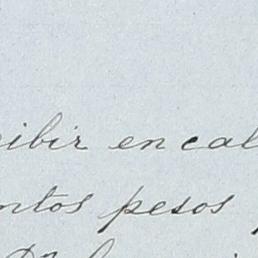 cibir en cal
ntos pesos